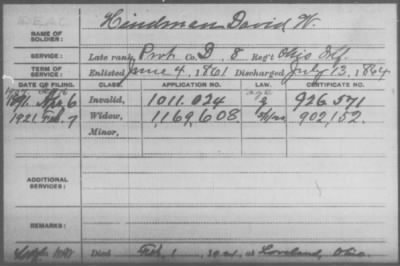 NAME OF SOLDIER: Hindman David W.
SERVICE: Late rank, Prvt. Co. D, 8 Reg't Ohio Inf.
TERM OF SERVICE: Enlisted June 4, 1861 Discharged July 13, 1864
DATE OF FILING. CLASS. APPLICATION NO. LAW. CERTIFICATE NO.
1891 6 Invalid, 1011.024 926.571
1921. Feb. 7 Widow, 1,169,608 902,152.
Minor,
ADDITIONAL SERVICES:
REMARKS:
Died Feb. 1, 1921, at Loveland, Ohio.